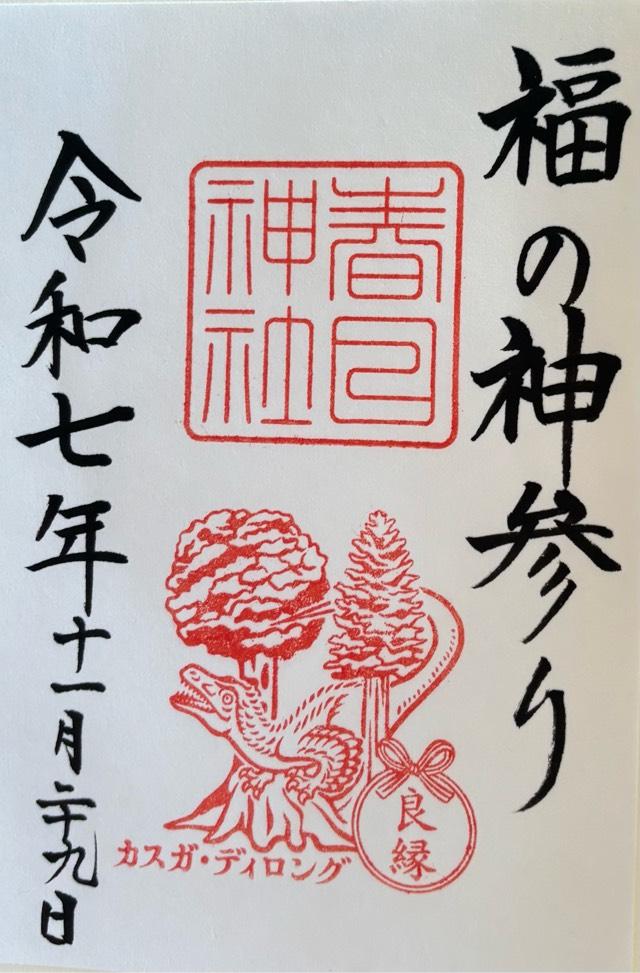 福の神参り
春日
神社
カスガ・ディロング
良縁
令和七年十一月二十九日